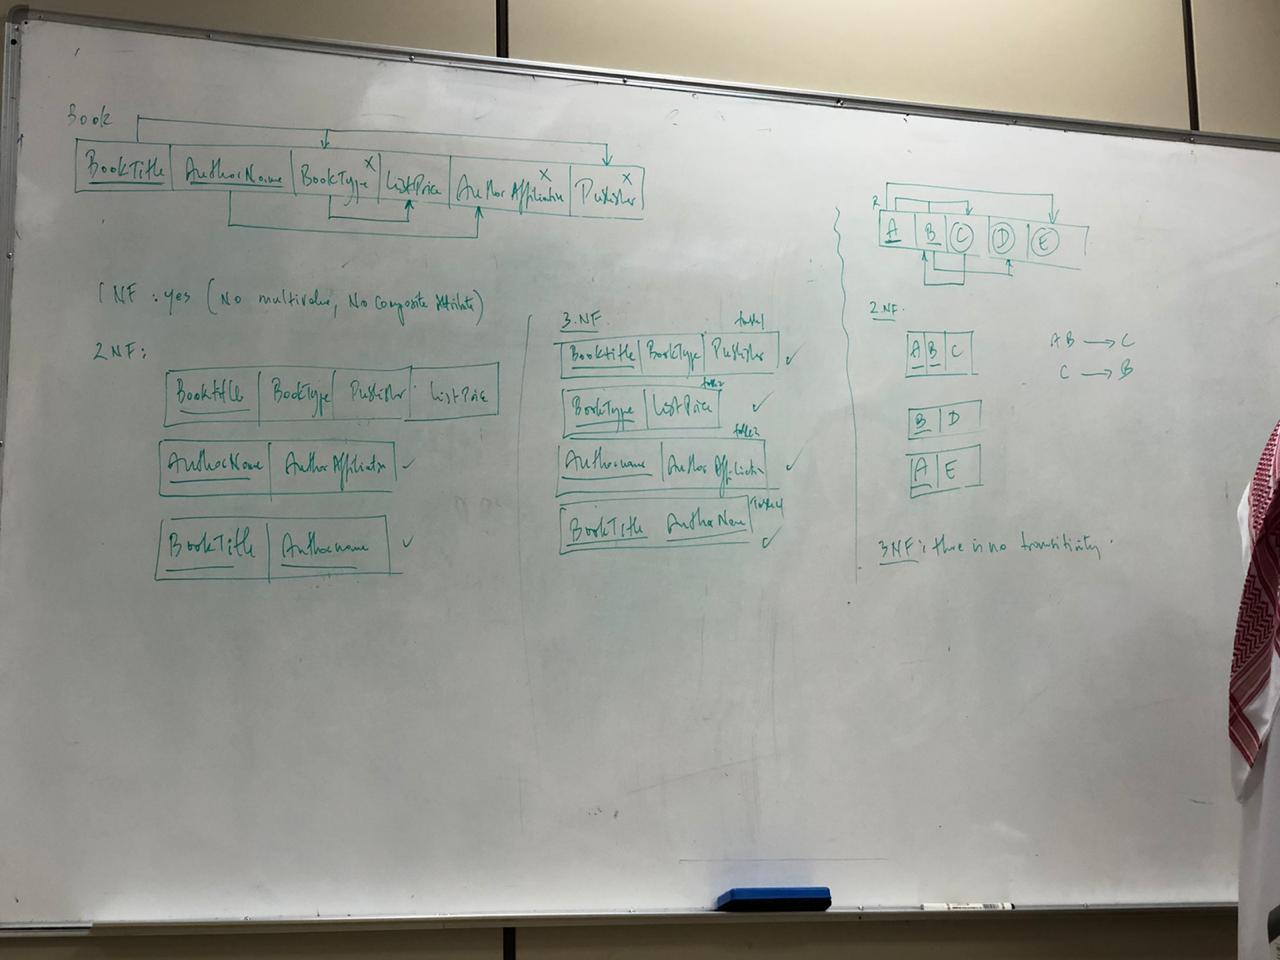 Book
BookTitle AuthorName BookType x ListPrice Author Affiliation x Publisher x
1 NF : yes (No multivalue, No Composite Attribute)
2 NF:
BookTitle BookType Publisher ListPrice
AuthorName Author Affiliation ✓
BookTitle Authorname ✓
3.NF
table1
Booktitle BookType Publisher ✓
table2
BookType ListPrice ✓
table3
Authorname Author Affiliation ✓
table4
BookTitle AuthorName ✓
R
A B C D E
2.NF
A B C
AB → C
C → B
B D
A E
3NF : there is no transitivity.